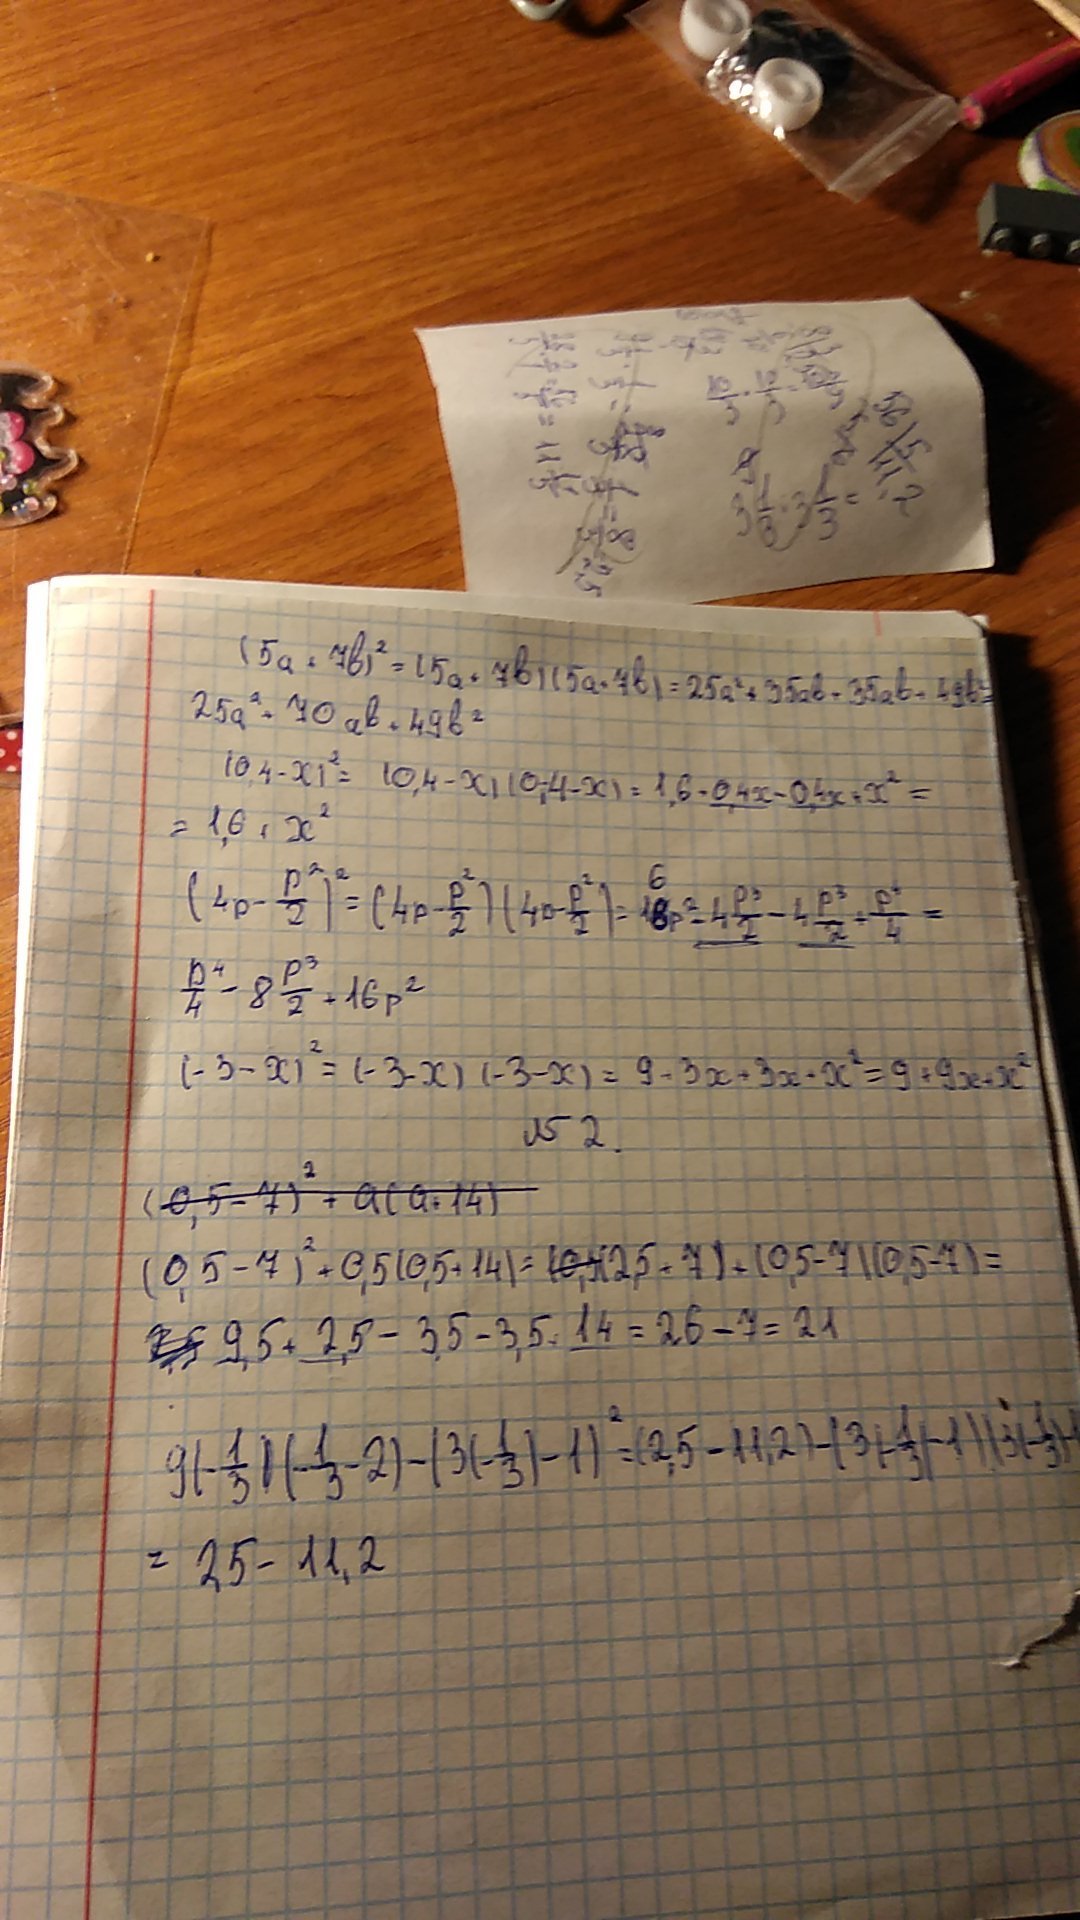 (5a + 7b)² = (5a + 7b)(5a + 7b) = 25a² + 35ab + 35ab + 49b² =
25a² + 70ab + 49b²
(0,4 - x)² = (0,4 - x)(0,4 - x) = 1,6 - 0,4x - 0,4x + x² =
= 1,6 + x²
(4p - p²/2)² = (4p - p²/2)(4p - p²/2) = 16p² - 4p³/2 - 4p³/2 + p⁴/4 =
p⁴/4 - 8p³/2 + 16p²
(-3 - x)² = (-3 - x)(-3 - x) = 9 + 3x + 3x + x² = 9 + 9x + x²
№ 2.
(0,5 - 7)² + a(a + 14)
(0,5 - 7)² + 0,5(0,5 + 14) = (2,5 + 7) + (0,5 - 7)(0,5 - 7) =
9,5 + 2,5 - 3,5 - 3,5 + 14 = 26 - 7 = 21
9(-1/3)(-1/3 - 2) - (3(-1/3) - 1)² = (2,5 - 11,2) - (3(-1/3) - 1)(3(-1/3) - 1
= 2,5 - 11,2
56 5
11,2
3 1/3 · 3 1/3 =